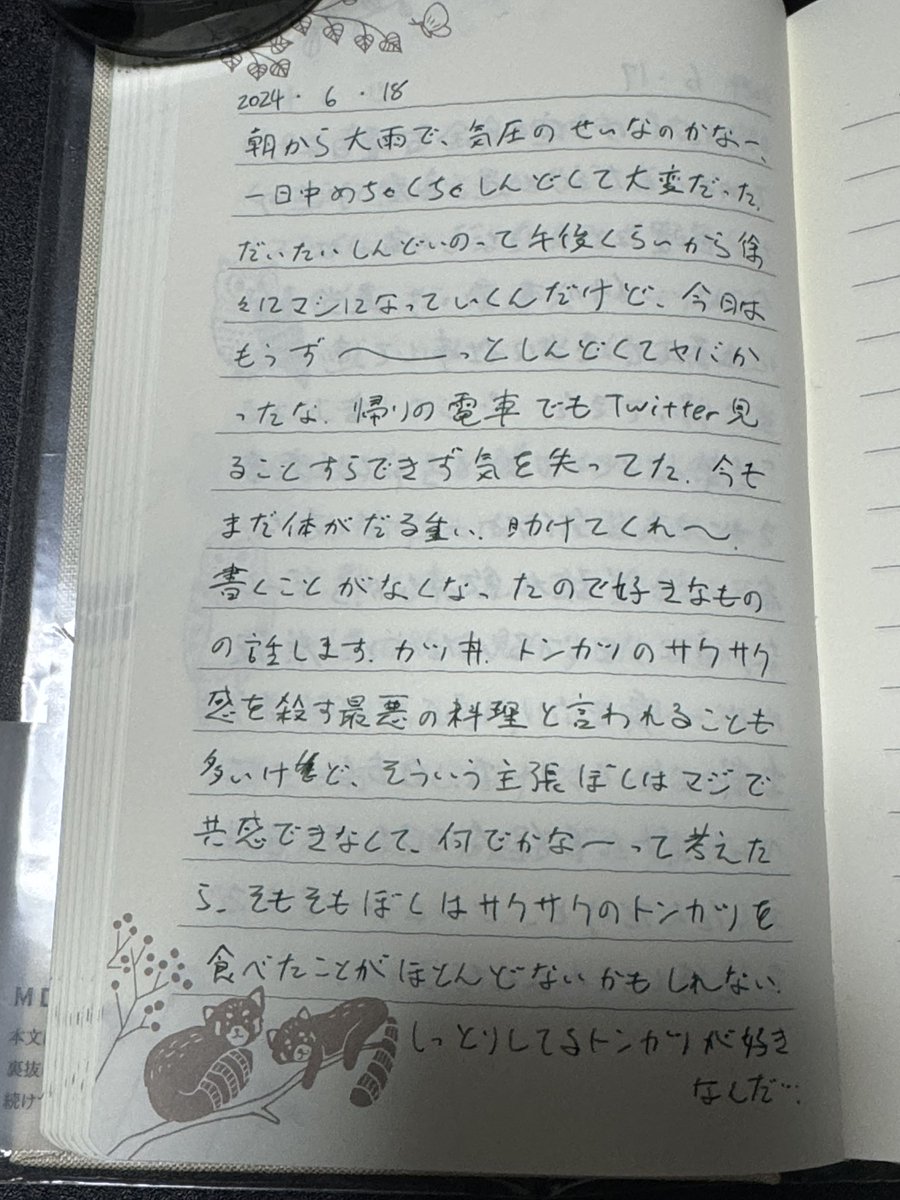 2024・6・18
朝から大雨で、気圧のせいなのかなー、
一日中めちゃくちゃしんどくて大変だった。
だいたいしんどいのって午後くらいから徐
々にマシになっていくんだけど、今日は
もうず〜っとしんどくてヤバか
ったな。帰りの電車でもTwitter見
ることすらできず気を失ってた。今も
まだ体がだる重い。助けてくれ〜。
書くことがなくなったので好きなもの
の話します。カツ丼。トンカツのサクサク
感を殺す最悪の料理と言われることも
多いけど、そういう主張ぼくはマジで
共感できなくて、何でかなーって考えた
ら、そもそもぼくはサクサクのトンカツを
食べたことがほとんどないかもしれない。
しっとりしてるトンカツが好き
なんだ…。
6・17
MD
本文
裏抜
続け